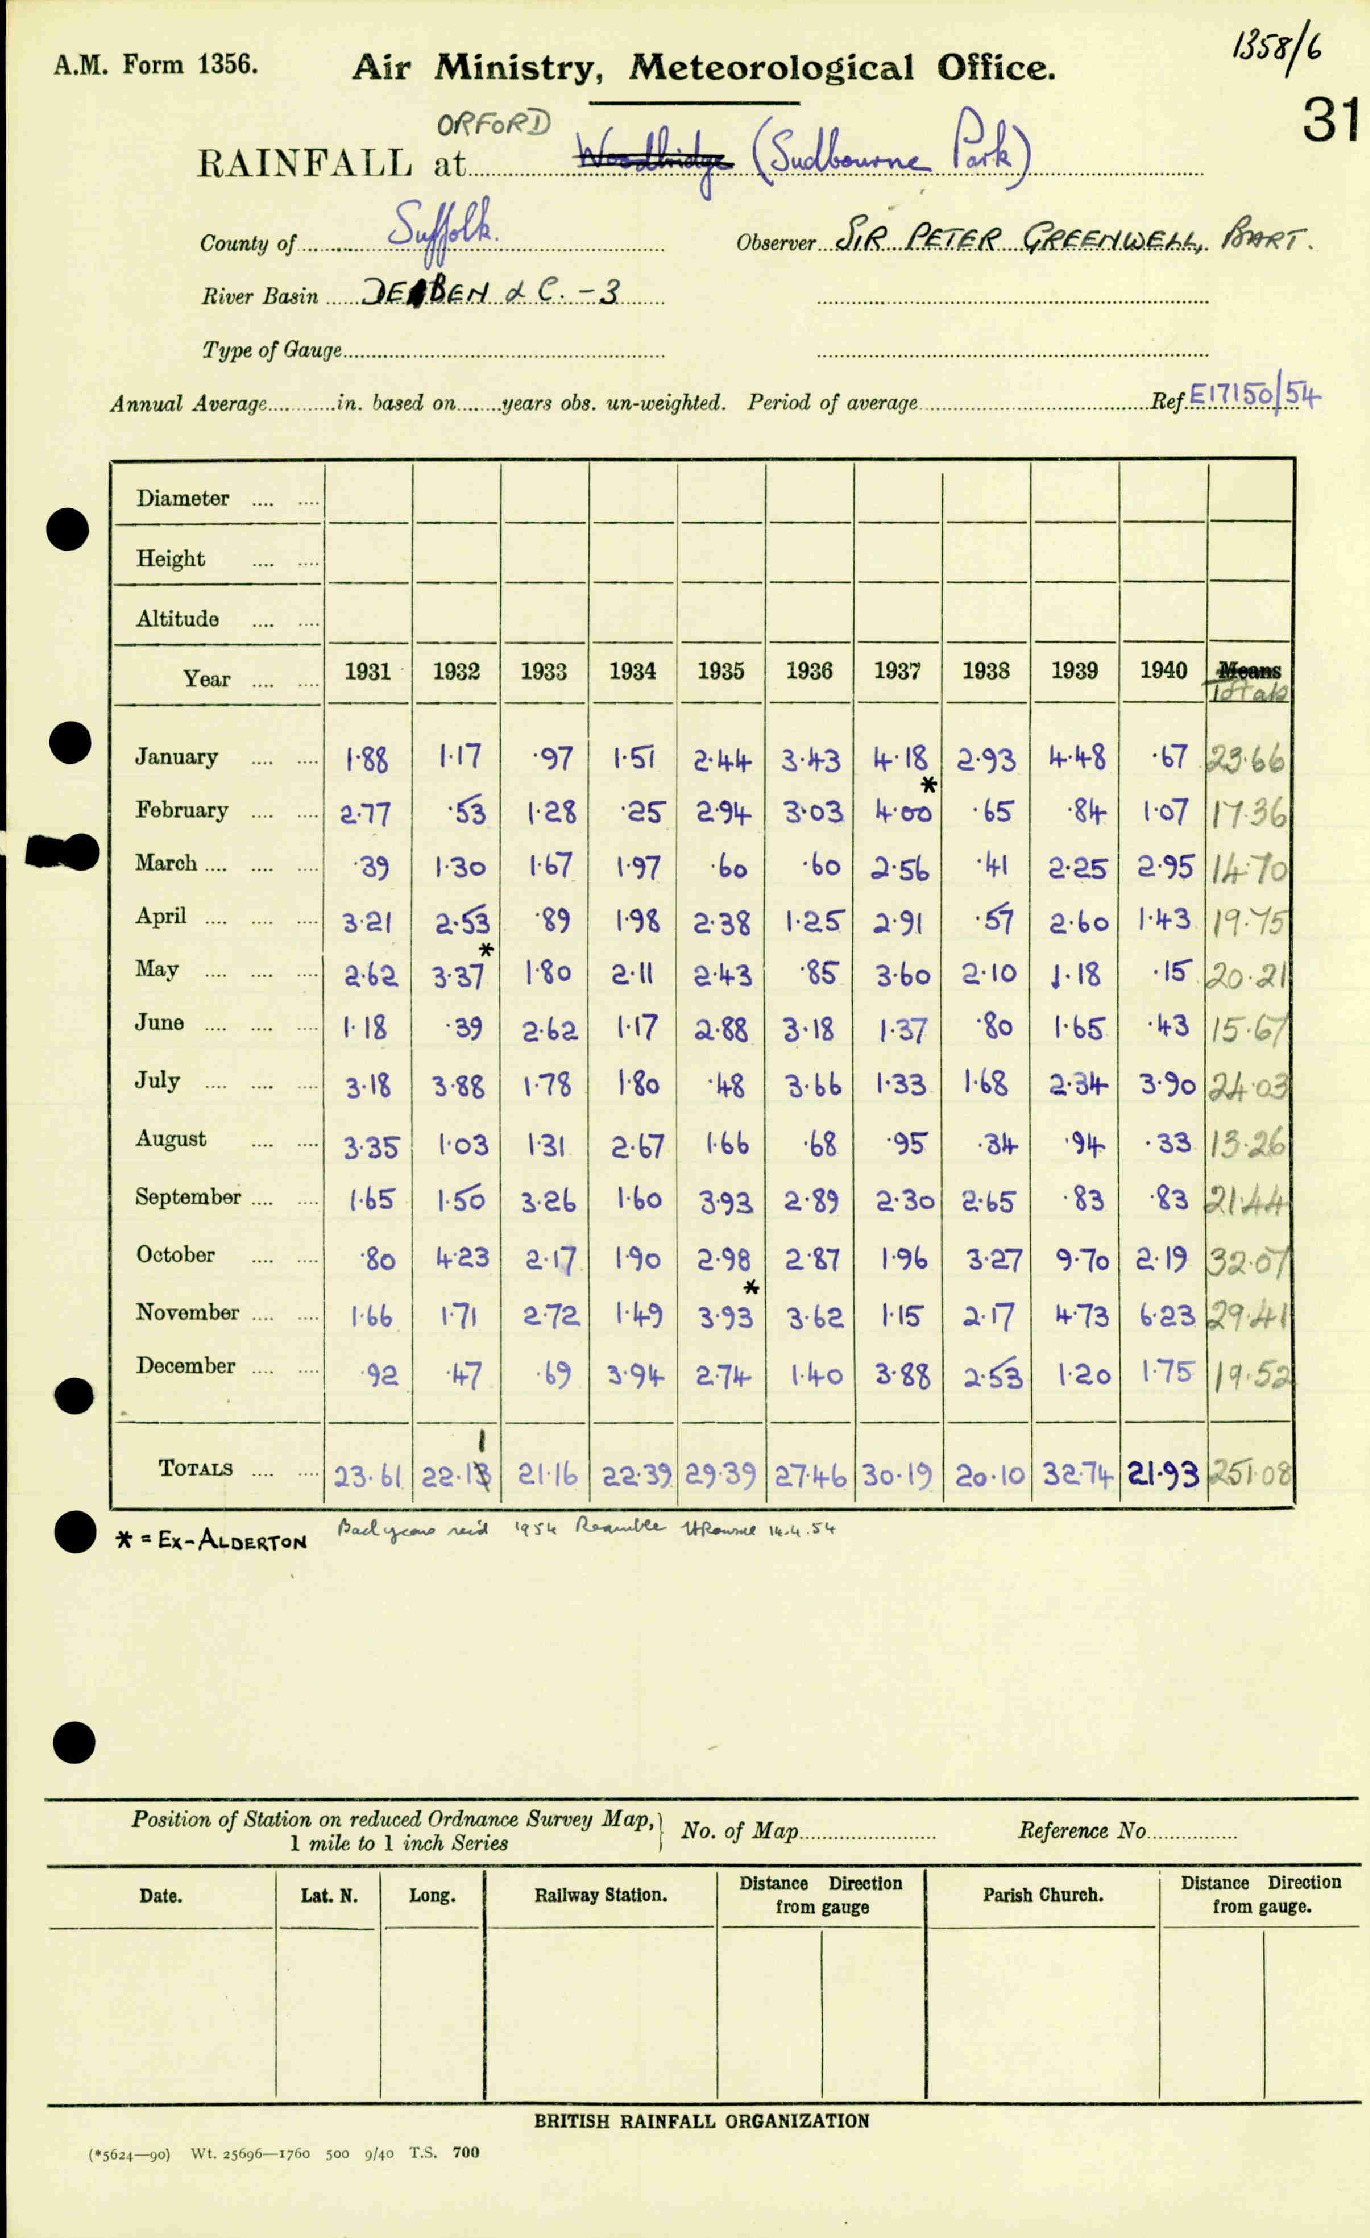 1358/6
A.M. Form 1356. Air Ministry, Meteorological Office.
31
ORFORD
RAINFALL at Woodbridge (Sudbourne Park)
County of Suffolk. Observer SIR PETER GREENWELL, BART.
River Basin DEBEN & C. - 3
Type of Gauge
Annual Average in. based on years obs. un-weighted. Period of average Ref. E17150/54
Diameter
Height
Altitude
Year 1931 1932 1933 1934 1935 1936 1937 1938 1939 1940 Means
Totals
January 1·88 1·17 ·97 1·51 2·44 3·43 4·18 2·93 4·48 ·67 23·66
*
February 2·77 ·53 1·28 ·25 2·94 3·03 4·00 ·65 ·84 1·07 17·36
March ·39 1·30 1·67 1·97 ·60 ·60 2·56 ·41 2·25 2·95 14·70
April 3·21 2·53 ·89 1·98 2·38 1·25 2·91 ·57 2·60 1·43 19·75
*
May 2·62 3·37 1·80 2·11 2·43 ·85 3·60 2·10 1·18 ·15 20·21
June 1·18 ·39 2·62 1·17 2·88 3·18 1·37 ·80 1·65 ·43 15·67
July 3·18 3·88 1·78 1·80 ·48 3·66 1·33 1·68 2·34 3·90 24·03
August 3·35 1·03 1·31 2·67 1·66 ·68 ·95 ·34 ·94 ·33 13·26
September 1·65 1·50 3·26 1·60 3·93 2·89 2·30 2·65 ·83 ·83 21·44
October ·80 4·23 2·17 1·90 2·98 2·87 1·96 3·27 9·70 2·19 32·07
*
November 1·66 1·71 2·72 1·49 3·93 3·62 1·15 2·17 4·73 6·23 29·41
December ·92 ·47 ·69 3·94 2·74 1·40 3·88 2·53 1·20 1·75 19·52
1
TOTALS 23·61 22·13 21·16 22·39 29·39 27·46 30·19 20·10 32·74 21·93 251·08
* = EX-ALDERTON 1954 14.4.54
Position of Station on reduced Ordnance Survey Map, No. of Map Reference No.
1 mile to 1 inch Series
Date. Lat. N. Long. Railway Station. Distance Direction from gauge Parish Church. Distance Direction from gauge.
BRITISH RAINFALL ORGANIZATION
(*5624—90) Wt. 25696—1760 500 9/40 T.S. 700